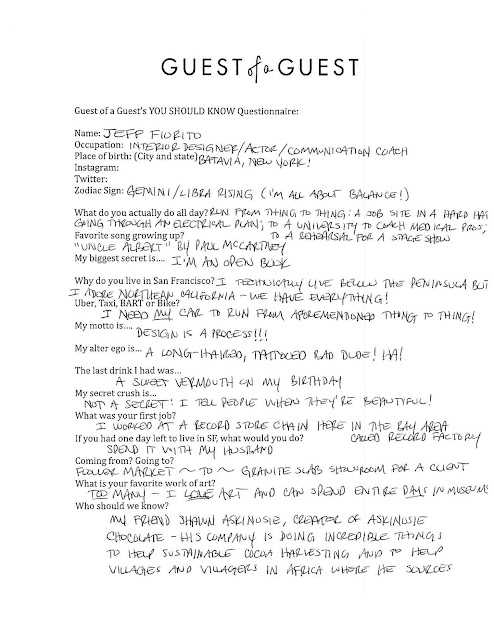 GUEST of a GUEST
Guest of a Guest's YOU SHOULD KNOW Questionnaire:
Name: JEFF FIORITO
Occupation: INTERIOR DESIGNER/ACTOR/COMMUNICATION COACH
Place of birth: (City and state) BATAVIA, NEW YORK!
Instagram:
Twitter:
Zodiac Sign: GEMINI/LIBRA RISING (I'M ALL ABOUT BALANCE!)
What do you actually do all day? RUN FROM THING TO THING: A JOB SITE IN A HARD HAT
GOING THROUGH AN ELECTRICAL PLAN; TO A UNIVERSITY TO COACH MEDICAL PROS;
Favorite song growing up? TO A REHEARSAL FOR A STAGE SHOW
"UNCLE ALBERT" BY PAUL MCCARTNEY
My biggest secret is.... I'M AN OPEN BOOK
Why do you live in San Francisco? I TECHNICALLY LIVE BELOW THE PENINSULA BUT
I ADORE NORTHERN CALIFORNIA - WE HAVE EVERYTHING!
Uber, Taxi, BART or Bike?
I NEED MY CAR TO RUN FROM AFOREMENTIONED THING TO THING!
My motto is.... DESIGN IS A PROCESS!!!
My alter ego is... A LONG-HAIRED, TATTOOED BAD DUDE! HA!
The last drink I had was...
A SWEET VERMOUTH ON MY BIRTHDAY
My secret crush is...
NOT A SECRET: I TELL PEOPLE WHEN THEY'RE BEAUTIFUL!
What was your first job?
I WORKED AT A RECORD STORE CHAIN HERE IN THE BAY AREA
If you had one day left to live in SF, what would you do? CALLED RECORD FACTORY
SPEND IT WITH MY HUSBAND
Coming from? Going to?
FLOWER MARKET ~ TO ~ GRANITE SLAB SHOWROOM FOR A CLIENT
What is your favorite work of art?
TOO MANY - I LOVE ART AND CAN SPEND ENTIRE DAYS IN MUSEUMS
Who should we know?
MY FRIEND SHAWN ASKINOSIE, CREATOR OF ASKINOSIE
CHOCOLATE - HIS COMPANY IS DOING INCREDIBLE THINGS
TO HELP SUSTAINABLE COCOA HARVESTING AND TO HELP
VILLAGES AND VILLAGERS IN AFRICA WHERE HE SOURCES